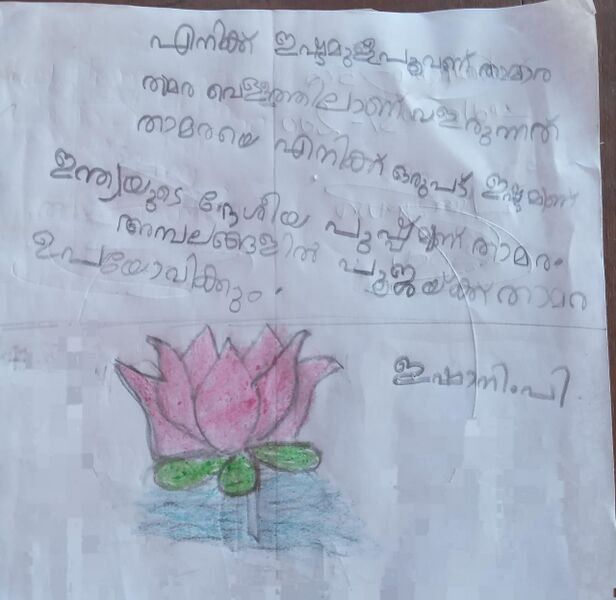 എനിക്ക് ഇഷ്ടമുള്ള പൂവണ് താമാര
തമര വെള്ളത്തിലാണ് വളരുന്നത്
താമരയെ എനിക്ക് ഒരുപട് ഇഷ്ടമണ്
ഇന്ത്യയുടെ ദേശീയ പുഷ്പ്പമണ് താമര.
അമ്പലങ്ങളിൽ പൂജയ്ക്ക് താമര
ഉപയോഗിക്കും.
ഇഷാനി.പി